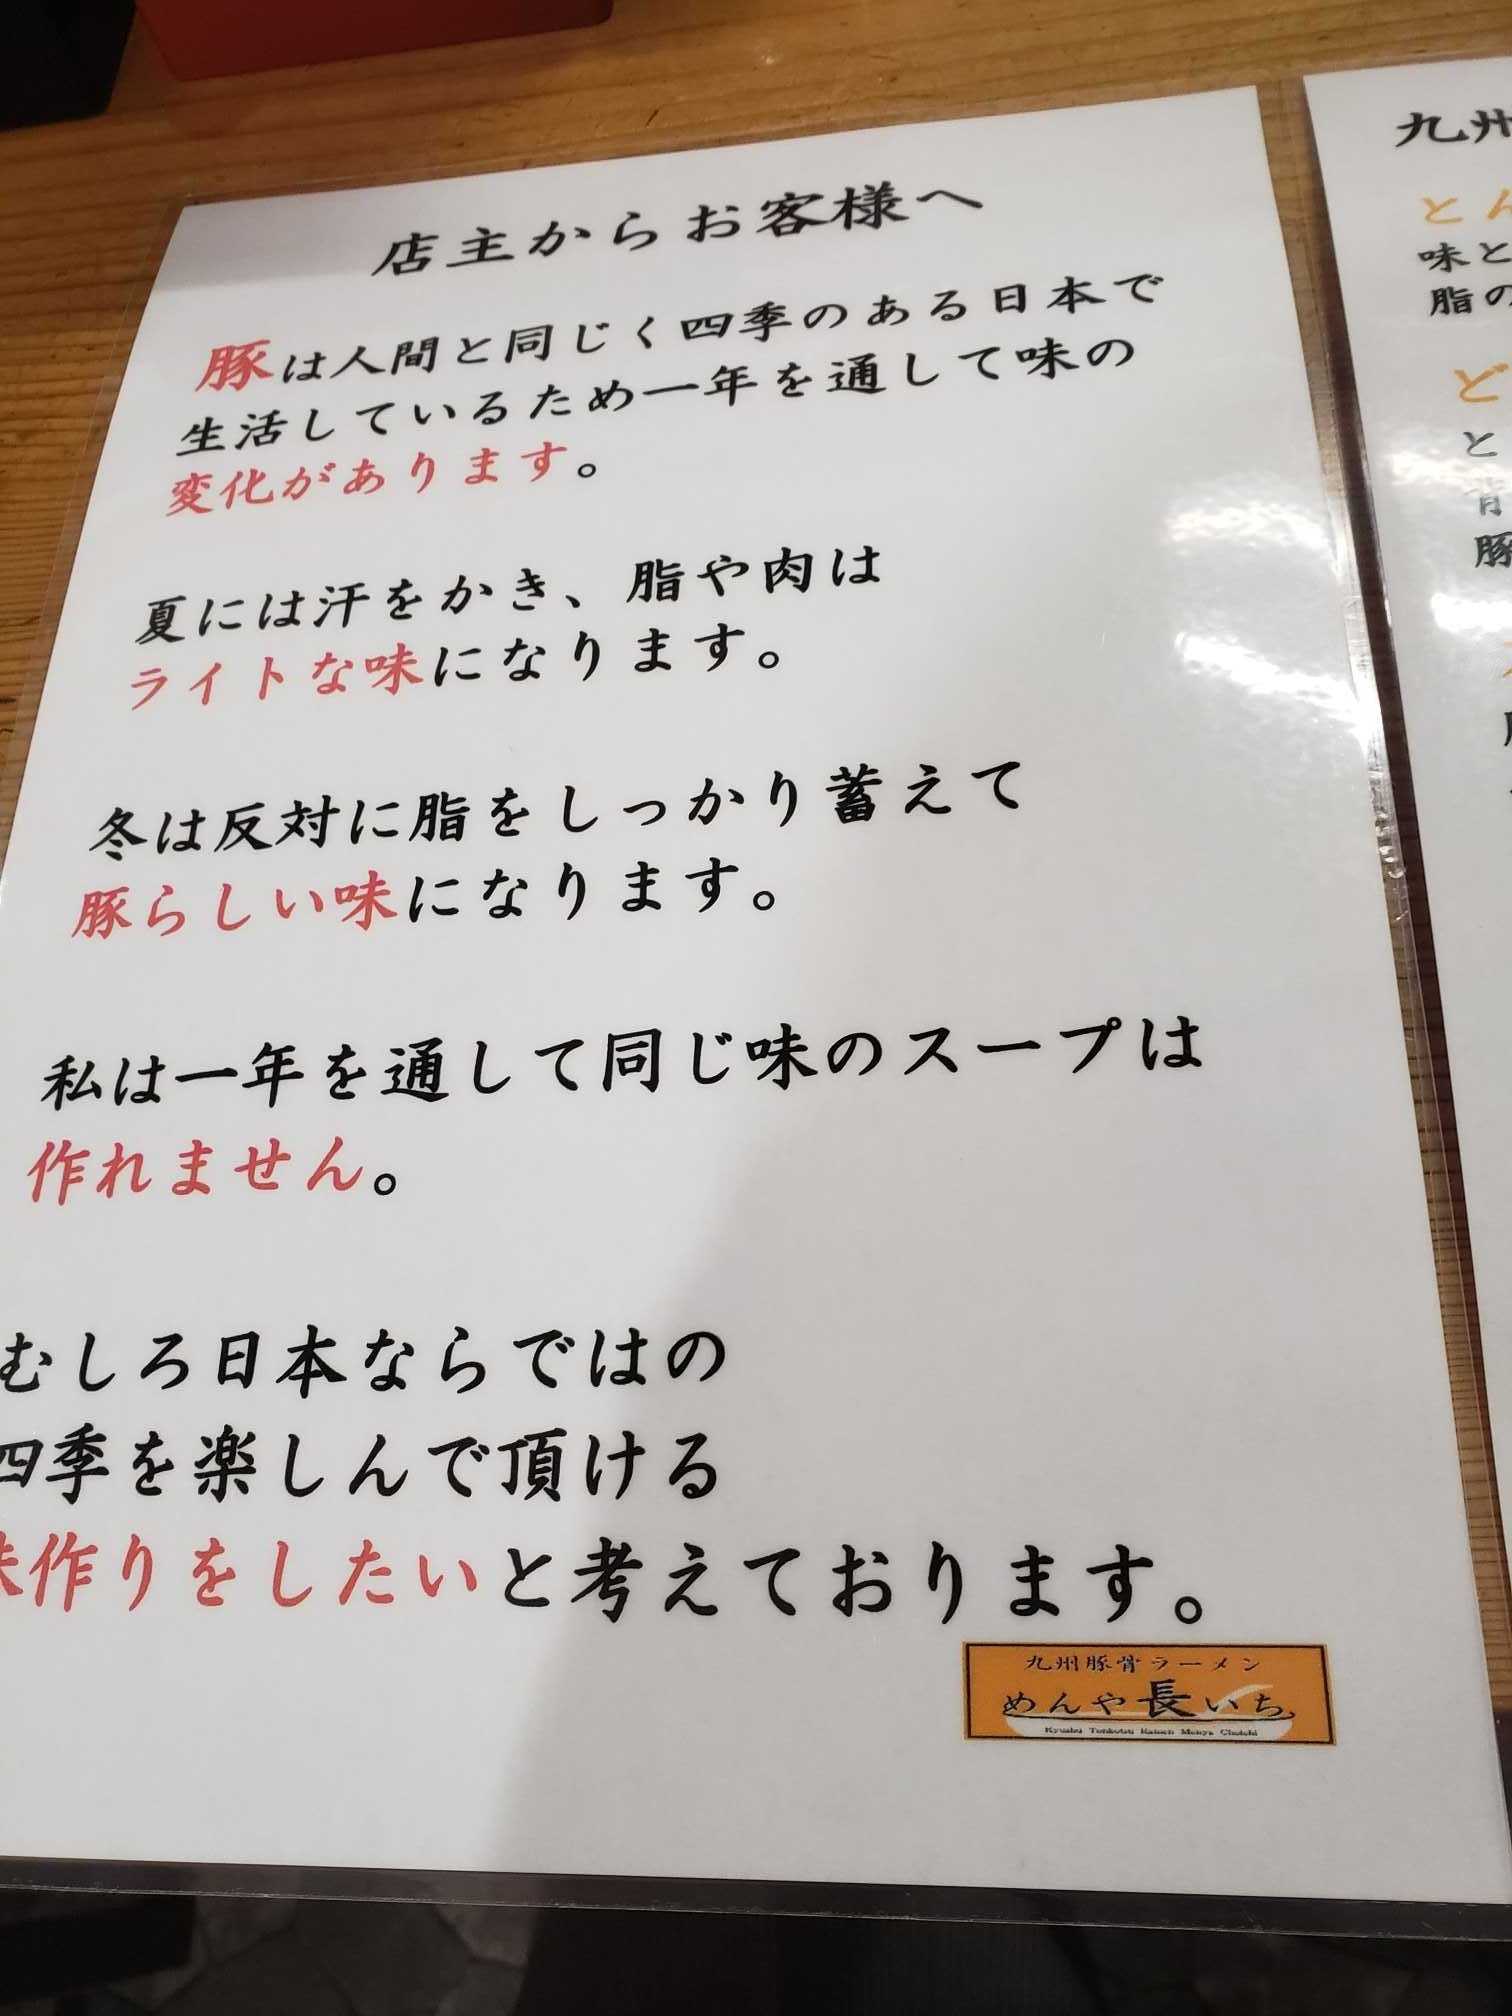 店主からお客様へ
豚は人間と同じく四季のある日本で
生活しているため一年を通して味の
変化があります。
夏には汗をかき、脂や肉は
ライトな味になります。
冬は反対に脂をしっかり蓄えて
豚らしい味になります。
私は一年を通して同じ味のスープは
作れません。
むしろ日本ならではの
四季を楽しんで頂ける
味作りをしたいと考えております。
九州豚骨ラーメン
めんや長いち
Kyushu Tonkotsu Ramen Menya Choichi
九州
とん
味と
脂の
ど
と
背
豚